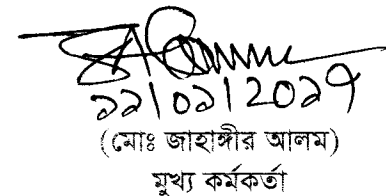 ১১/০১/২০১৭
(মোঃ জাহাঙ্গীর আলম)
মুখ্য কর্মকর্তা